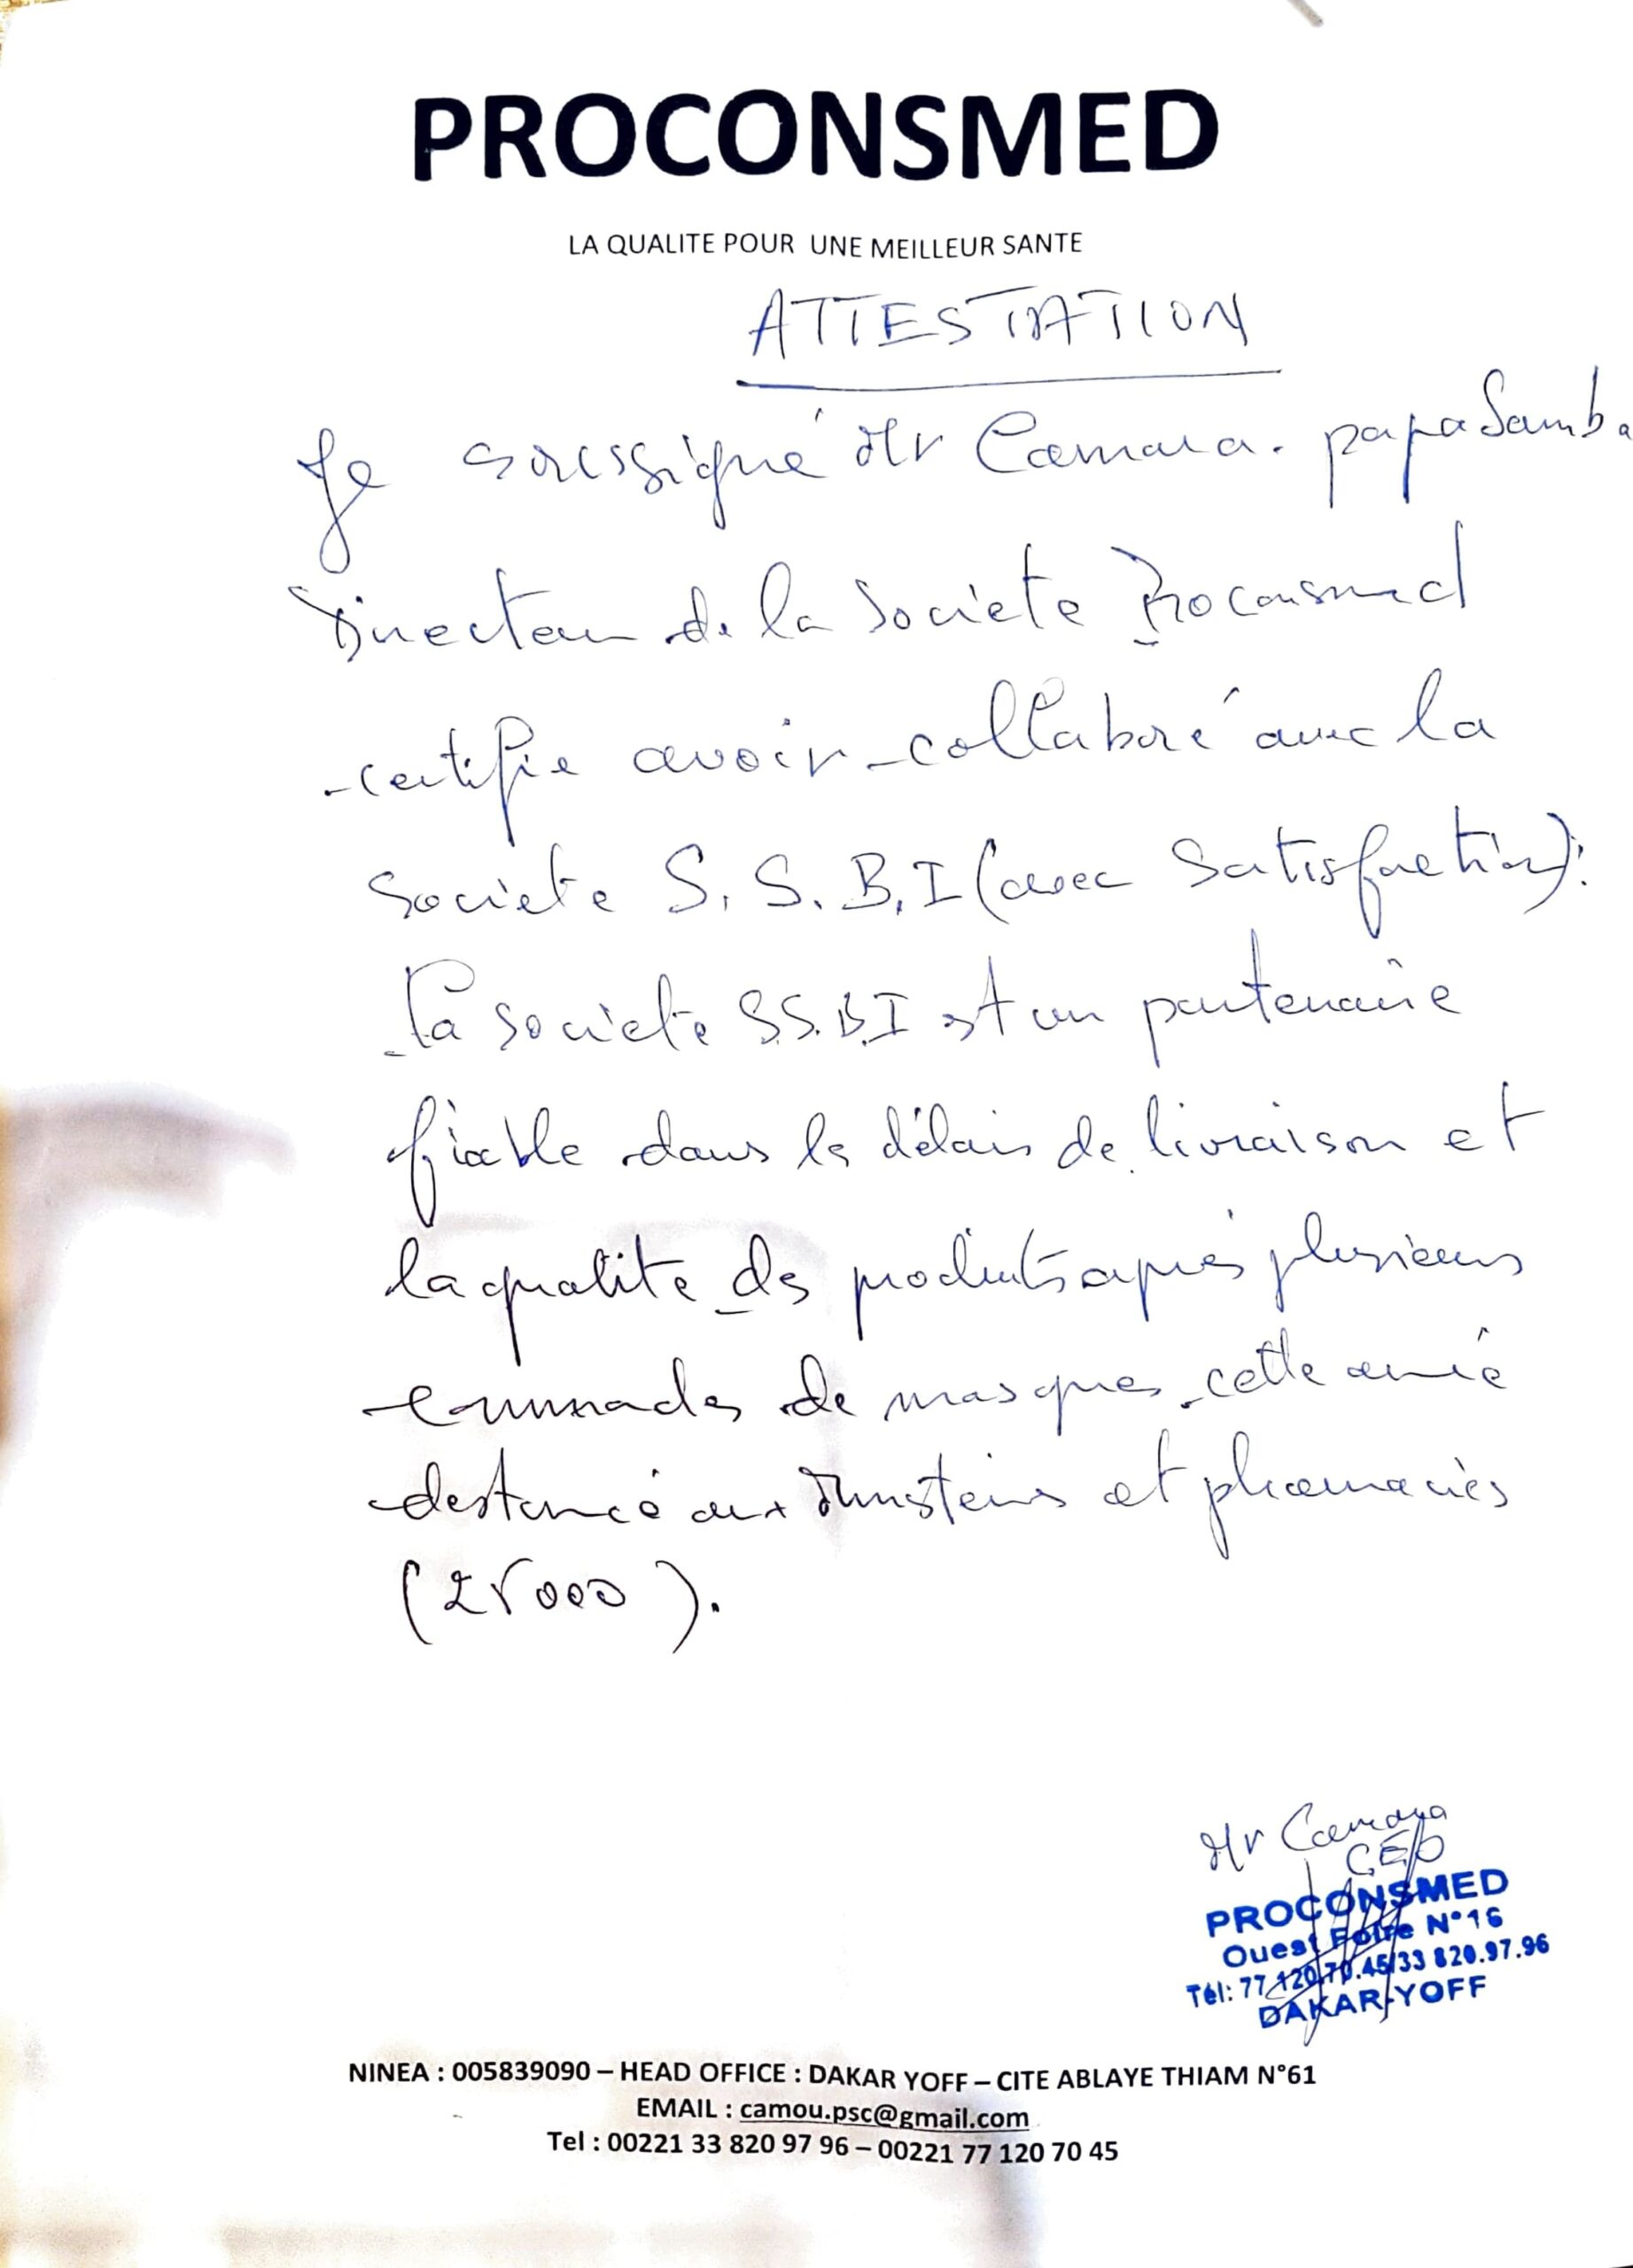 PROCONSMED
LA QUALITE POUR UNE MEILLEUR SANTE
ATTESTATION
Je soussigné Mr Camara. papa Samba
Directeur de la Société Proconsmed
certifie avoir collaboré avec la
Societe S.S.B.I (avec Satisfaction):
La Societe S.S.B.I est un partenaire
fiable dans les délais de livraison et
la qualité des produits après plusieurs
commandes de masques cette année
destiné aux Ministeres et pharmacies
(25000).
Mr Camara
CEO
PROCONSMED
Ouest Foire N°16
Tél: 77 120.70.45/33 820.97.96
DAKAR-YOFF
NINEA : 005839090 – HEAD OFFICE : DAKAR YOFF – CITE ABLAYE THIAM N°61
EMAIL : camou.psc@gmail.com
Tel : 00221 33 820 97 96 – 00221 77 120 70 45